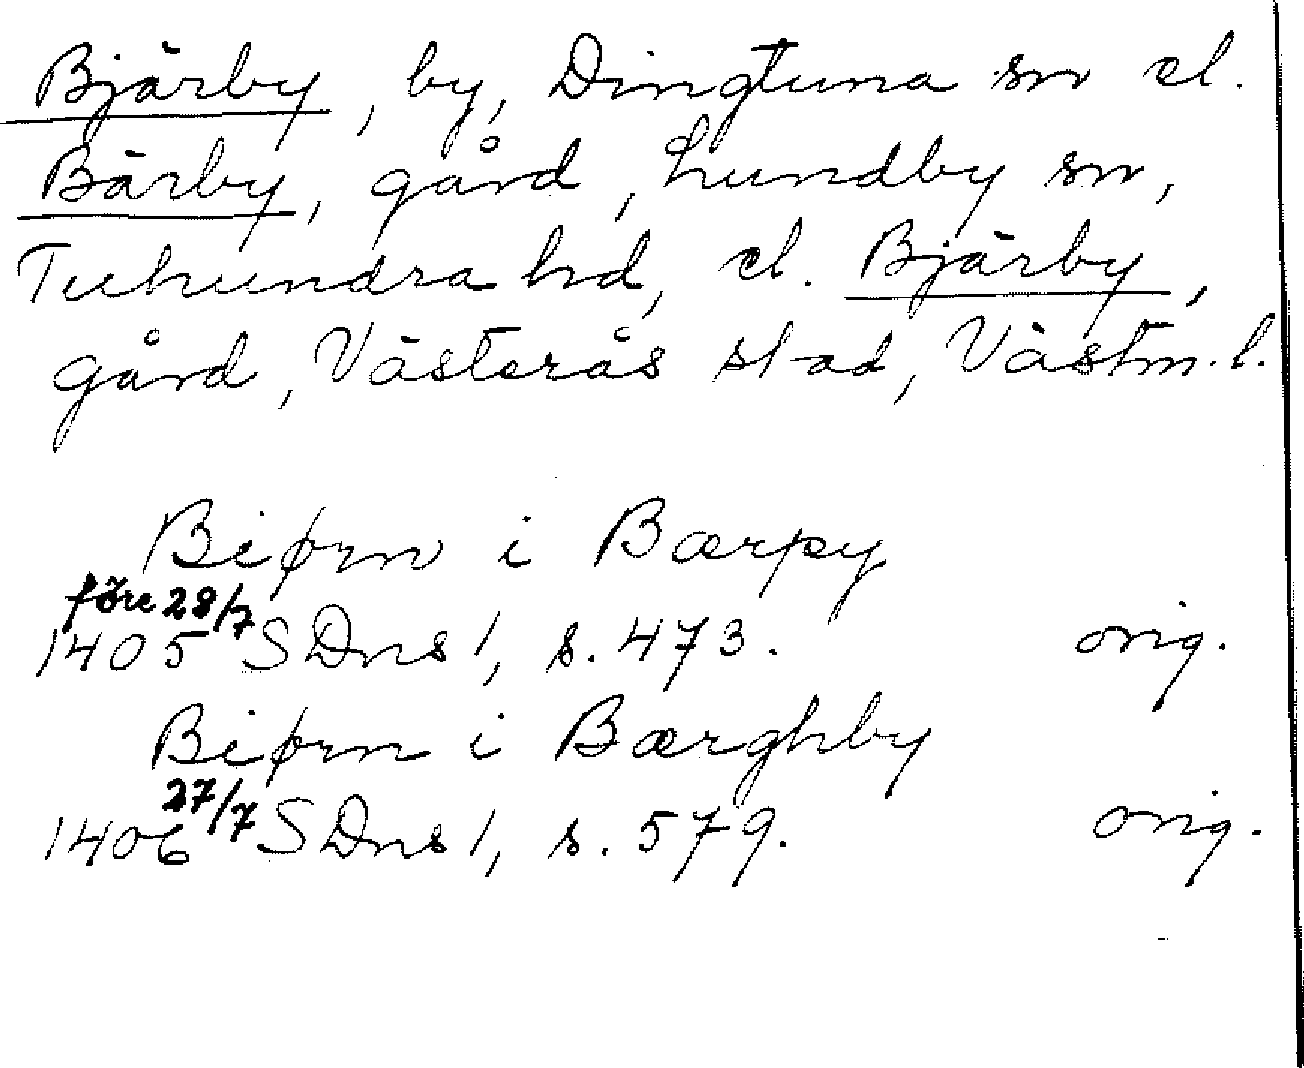 Bjärby, by, Dingtuna sn el.
Bärby, gård, Lundby sn,
Tuhundra hd, el. Bjärby,
gård, Västerås stad, Västm. l.
Biørn i Bærpy
före 28/7
1405 SDns 1, s. 473. orig.
Biørn i Bærghby
27/7
1406 SDns 1, s. 579. orig.